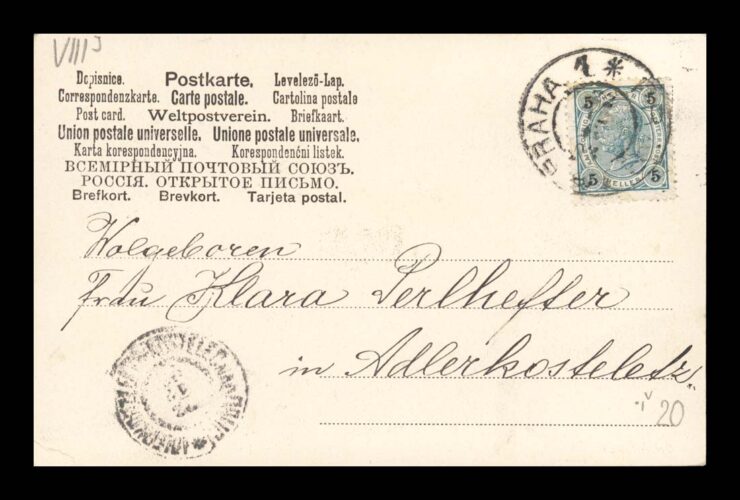 VIII
Dopisnice. Postkarte. Levelező-Lap.
Correspondenzkarte. Carte postale. Cartolina postale
Post card. Weltpostverein. Briefkaart.
Union postale universelle. Unione postale universale.
Karta korespondencyjna. Korespondenční listek.
ВСЕМІРНЫЙ ПОЧТОВЫЙ СОЮЗЪ.
РОССІЯ. ОТКРЫТОЕ ПИСЬМО.
Brefkort. Brevkort. Tarjeta postal.
PRAHA 1
5 5
5 HELLER 5
Wolgeboren
Frau Klara Perlhefter
in Adlerkosteletz.
20